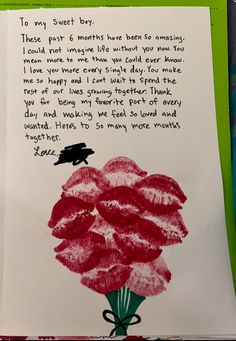 To my Sweet boy.
These past 6 months have been so amazing.
I could not imagine life without you now. You
mean more to me than you could ever know.
I love you more every single day. You make
me so happy and I cant wait to Spend the
rest of our lives growing together. Thank
you for being my favorite part of every
day and making me feel so loved and
wanted. Heres to so many more months
together.
Love,